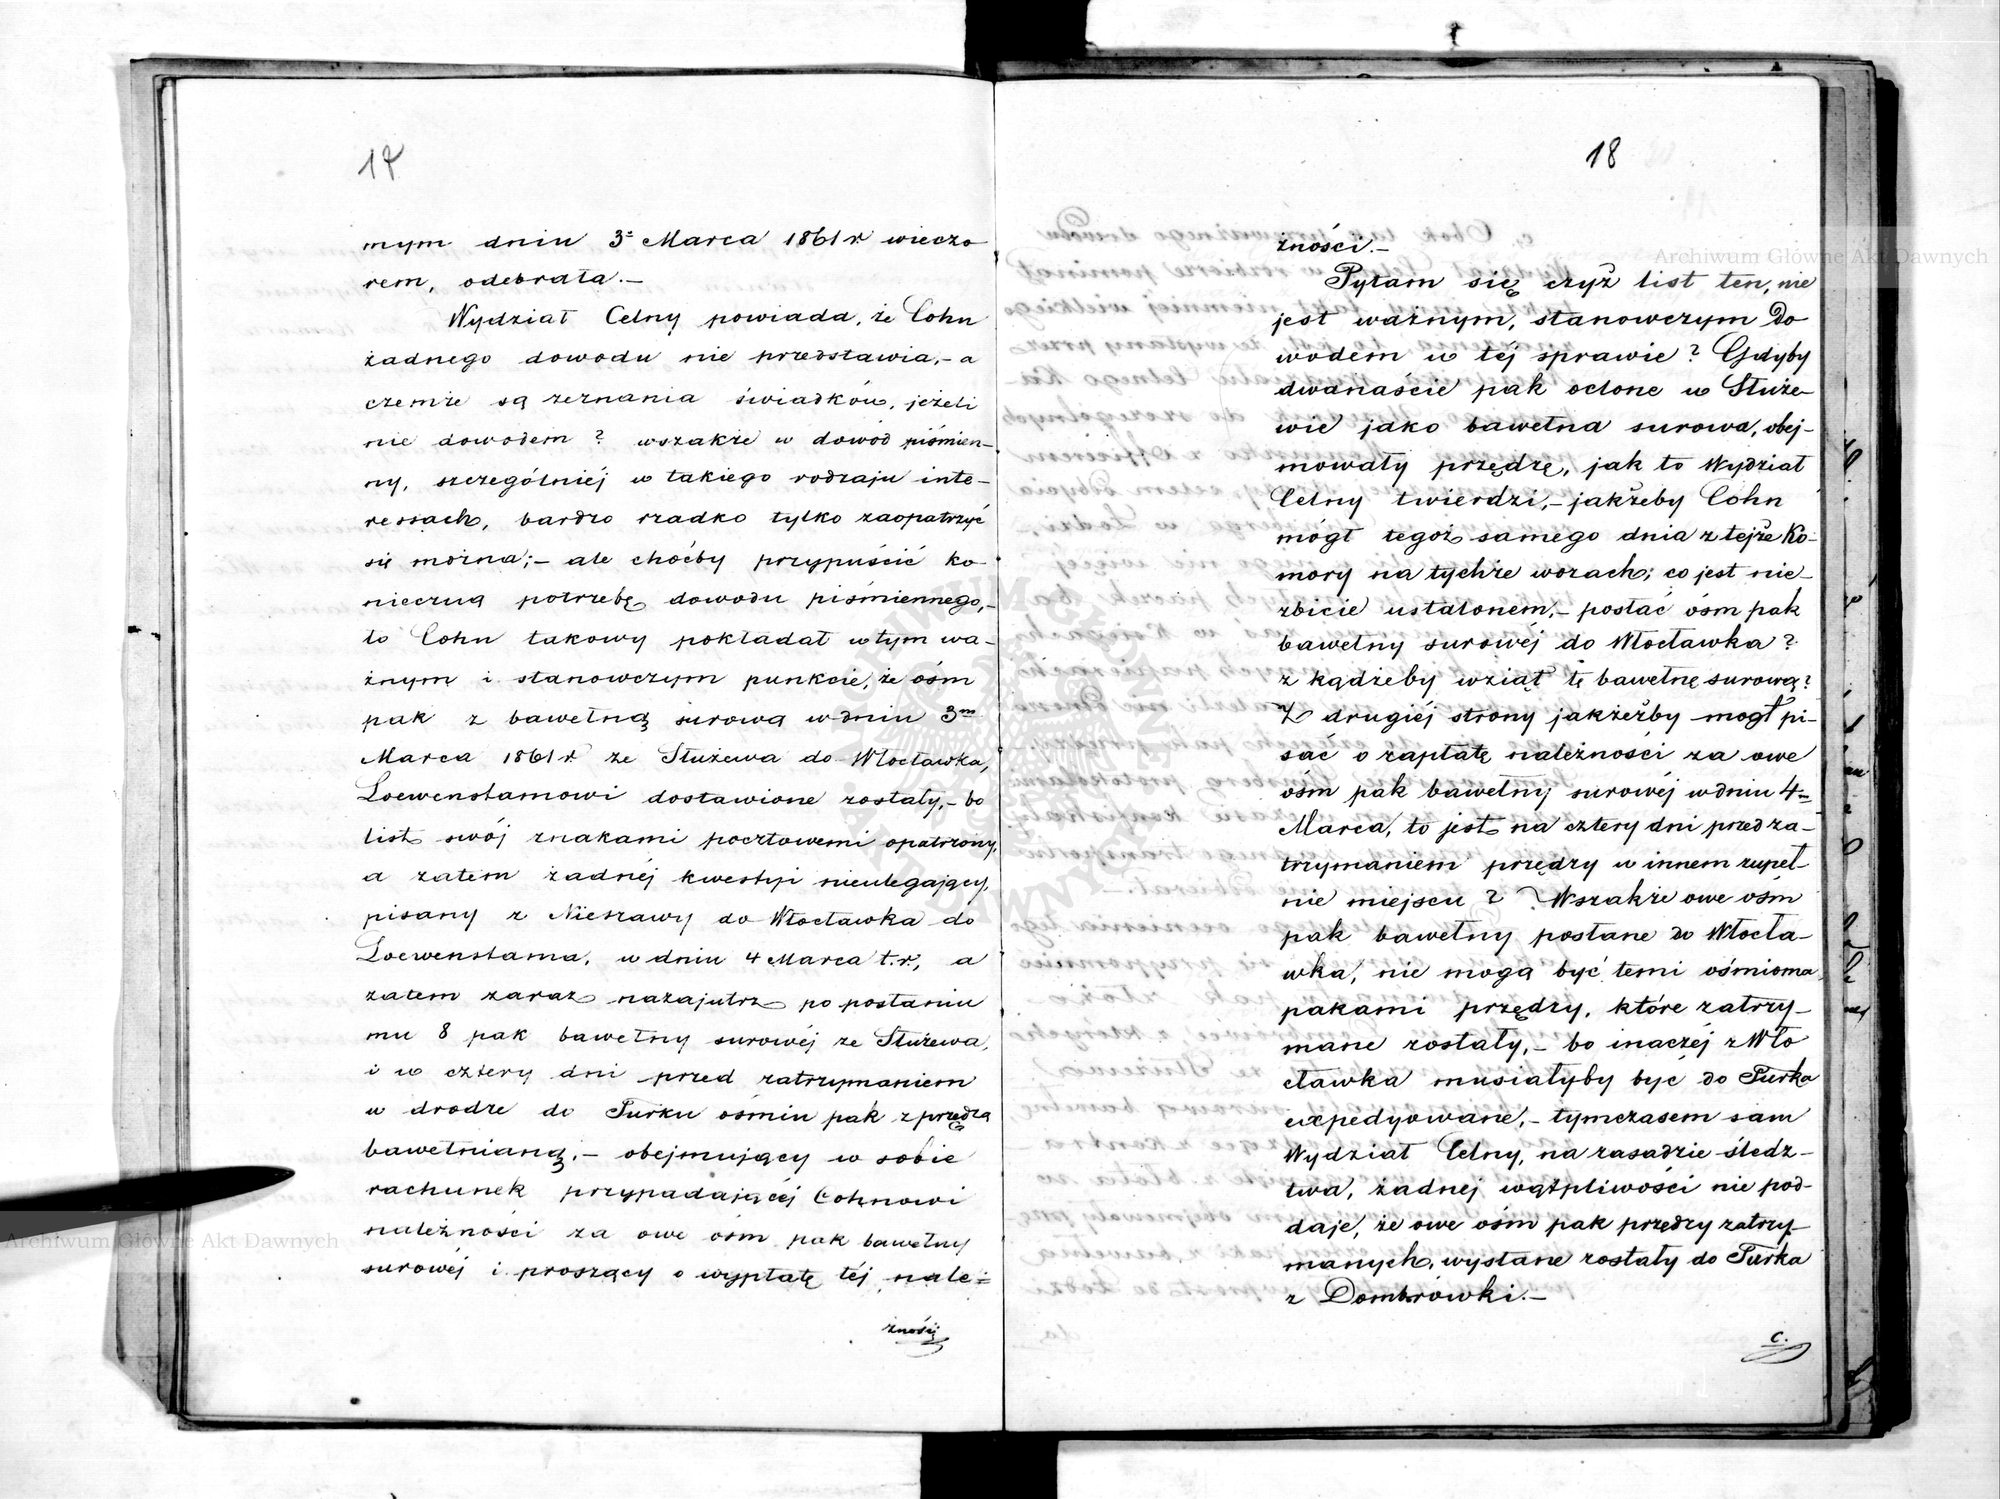 17
mym dniu 3º Marca 1861 r wieczo
rem, odebrała.—
Wydział Celny powiada, że Cohn
żadnego dowodu nie przedstawia,- a
czemże są zeznania świadków, jeżeli
nie dowodem? wszakże w dowód piśmien-
ny, szczególniéj w takiego rodzaju inte-
ressach, bardzo rzadko tylko zaopatrzyć
się można;- ale choćby przypuścić ko-
nieczną potrzebę dowodu piśmiennego,-
to Cohn takowy pokładał w tym wa-
żnym i stanowczym punkcie, że ośm
pak z bawełną surową w dniu 3m
Marca 1861 r ze Służewa do Włocławka,
Loewenstamowi dostawione zostały,- bo
list swój znakami pocztowemi opatrzony,
a zatem żadnéj kwestyi nieulegający,
pisany z Nieszawy do Włocławka do
Loewenstama, w dniu 4 Marca t.r., a
zatem zaraz nazajutrz po posłaniu
mu 8 pak bawełny surowéj ze Służewa,
i w cztery dni przed zatrzymaniem
w drodze do Turku ośmiu pak z przędzą
bawełnianą,- obejmujący w sobie
rachunek przypadającéj Cohnowi
należności za owe ośm pak bawełny
surowéj i proszący o wypłatę téj nale-
żności
18
żności.—
Pytam się czyż list ten, nie
jest ważnym, stanowczym do
wodem w téj sprawie? Gdyby
dwanaście pak oclone w Służe-
wie jako bawełna surowa, obej-
mowały przędzę, jak to Wydział
Celny twierdzi,- jakżeby Cohn
mógł tegoż samego dnia z tejże Ko-
mory na tychże wozach; co jest nie-
zbicie ustalonem,- posłać ośm pak
bawełny surowéj do Włocławka?
z kądżeby wziął tę bawełnę surową?
Z drugiéj strony jakżeżby mogł pi-
sać o zapłatę należności za owe
ośm pak bawełny surowéj w dniu 4m
Marca, to jest na cztery dni przed za-
trzymaniem przędzy w innem zupeł-
nie miejscu? Wszakże owe ośm
pak bawełny posłane do Włocła-
wka, nie mogą być temi ośmioma
pakami przędzy, które zatrzy-
mane zostały,- bo inaczéj z Wło
cławka musiałyby być do Turka
expedyowane,- tymczasem sam
Wydział Celny, na zasadzie śledz-
twa, żadnej wątpliwości nie pod-
daje, że owe ośm pak przędzy zatrzy-
manych, wysłane zostały do Turka
z Dombrówki.—
c.
Archiwum Główne Akt Dawnych
Archiwum Główne Akt Dawnych